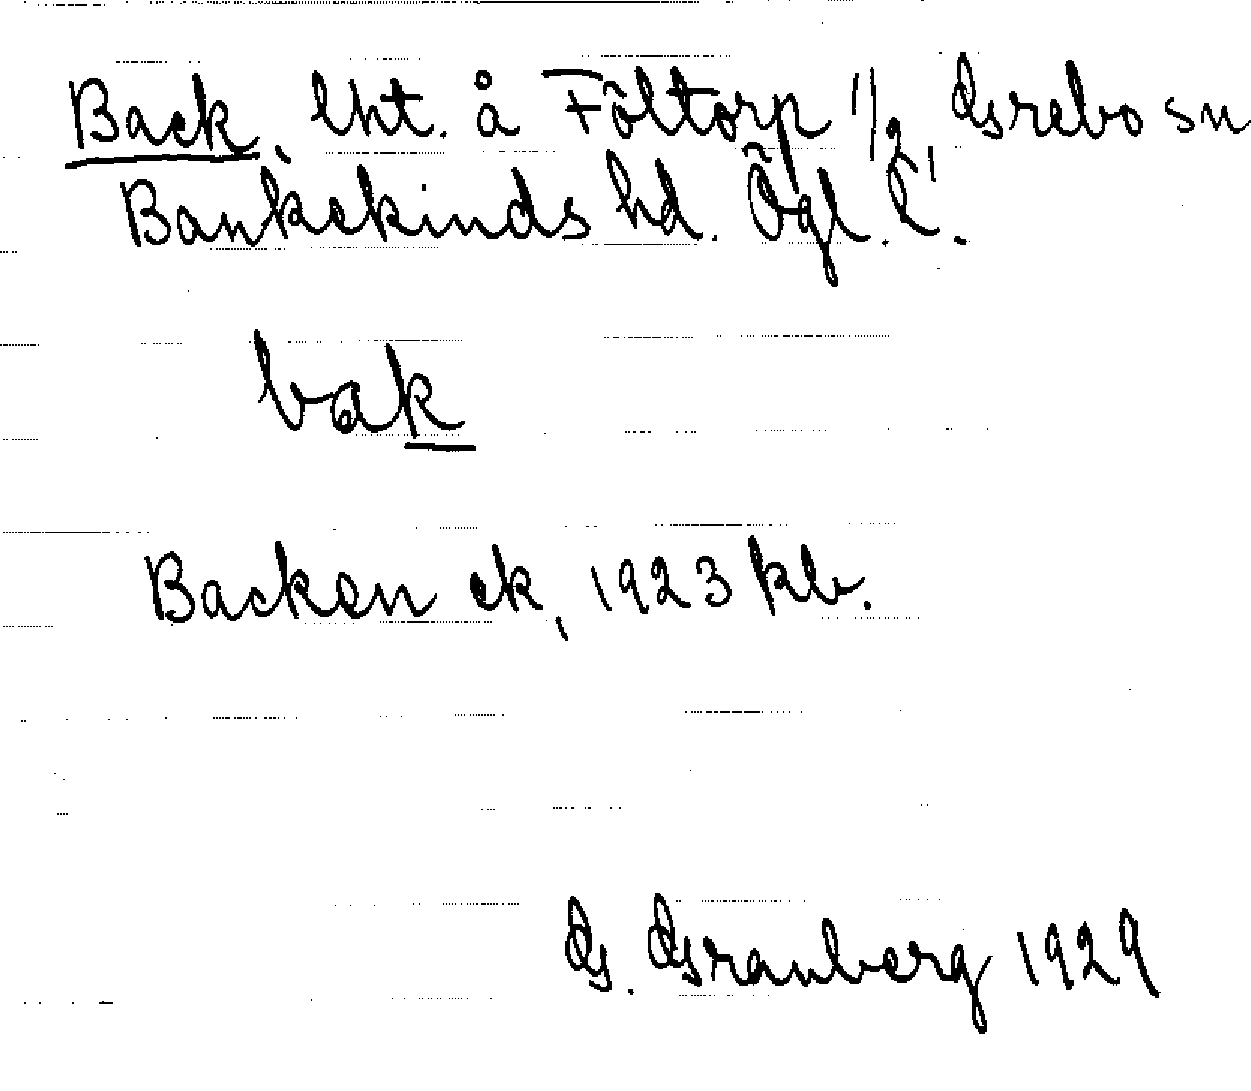 Back, lht. å Föltorp 1/2 Grebo sn
Bankekinds hd. Ögl. L.
bak
Backen ek, 1923 kb.
G. Granberg 1929